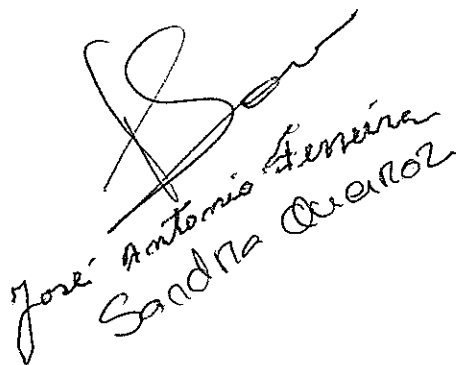 José Antonio Ferreira
Sandra Queiroz